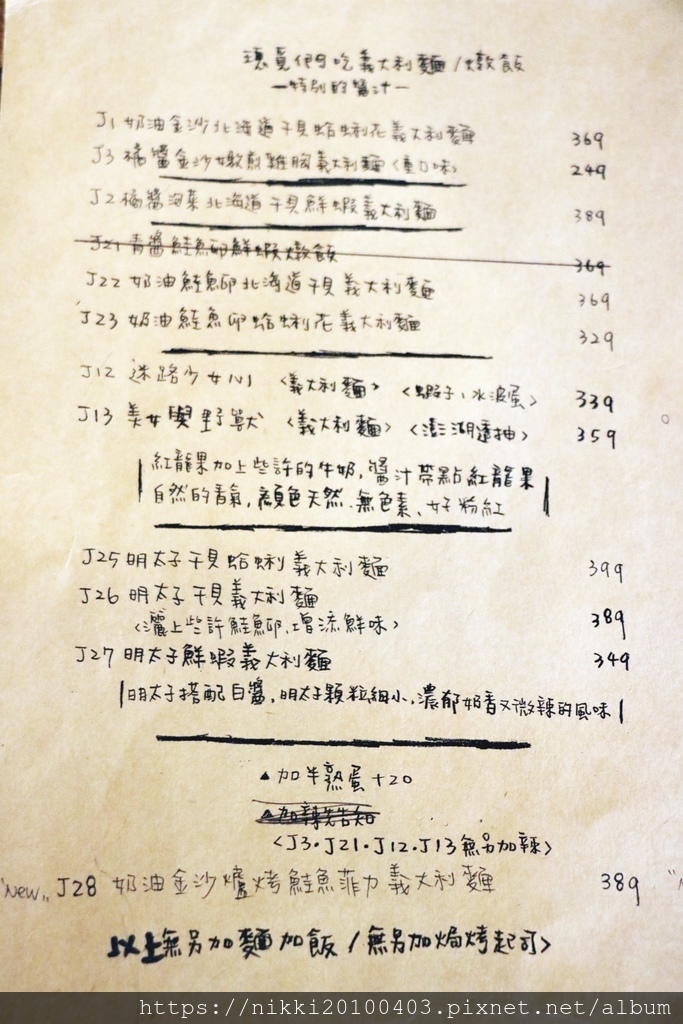 們吃義大利麵/燉飯
一特別的醬汁一
J1 奶油金沙北海道干貝蛤蜊花義大利麵 369
J3 橘醬金沙嫩煎雞胸義大利麵〈重口味〉 249
J2 橘醬泡菜北海道干貝鮮蝦義大利麵 389
J21 青醬鮭魚卵鮮蝦燉飯 369
J22 奶油鮭魚卵北海道干貝義大利麵 369
J23 奶油鮭魚卵蛤蜊花義大利麵 329
J12 迷路少女心 〈義大利麵〉 〈蝦子、水波蛋〉 339
J13 美女與野獸 〈義大利麵〉〈澎湖透抽〉 359
紅龍果加上些許的牛奶,醬汁帶點紅龍果
自然的香氣,顏色天然.無色素、好粉紅
J25 明太子干貝蛤蜊義大利麵 399
J26 明太子干貝義大利麵
〈灑上些許鮭魚卵.增添鮮味〉 389
J27 明太子鮮蝦義大利麵 349
明太子搭配白醬,明太子顆粒細小,濃郁奶香又微辣的風味
▲加半熟蛋+20
▲加辣先告知
〈J3.J21.J12.J13無另加辣〉
"New" J28 奶油金沙爐烤鮭魚菲力義大利麵 389
以上無另加麵加飯/無另加焗烤起司〉
https://nikki20100403.pixnet.net/album